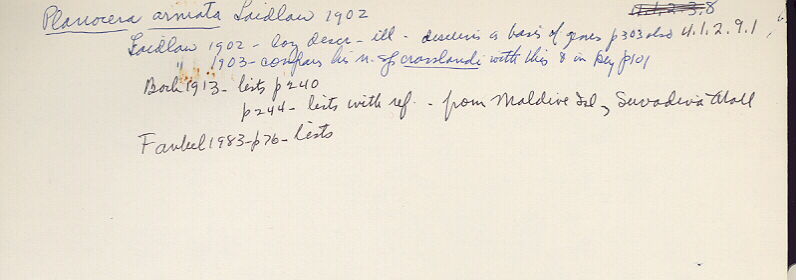 Planocera armata Laidlaw 1902
Laidlaw 1902 - long descr - ill - discusses a basis of genus p303 also 4.1.2.9.1,
" 1903 - compares his n. sp crosslandi with this & in key p101
Bock 1913 - lists p240
p244 - lists with ref. - from Maldive Isl, Suvadiva Atoll
Faubel 1983 - p76 - lists